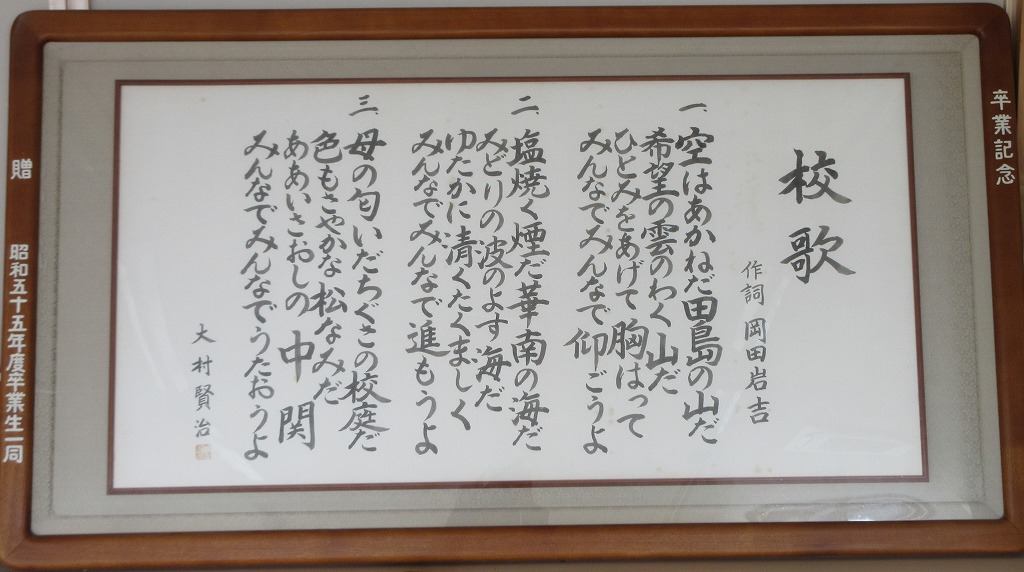 卒業記念
校歌
作詞 岡田岩吉
一、空はあかねだ田島の山だ
希望の雲のわく山だ
ひとみをあげて胸はって
みんなでみんなで仰ごうよ
二、塩焼く煙だ華南の海だ
みどりの波のよす海だ
ゆたかに清くたくましく
みんなでみんなで進もうよ
三、母の匂いだちぐさの校庭だ
色もさやかな松なみだ
ああいさおしの中関
みんなでみんなでうたおうよ
大村賢治
贈 昭和五十五年度卒業生一同